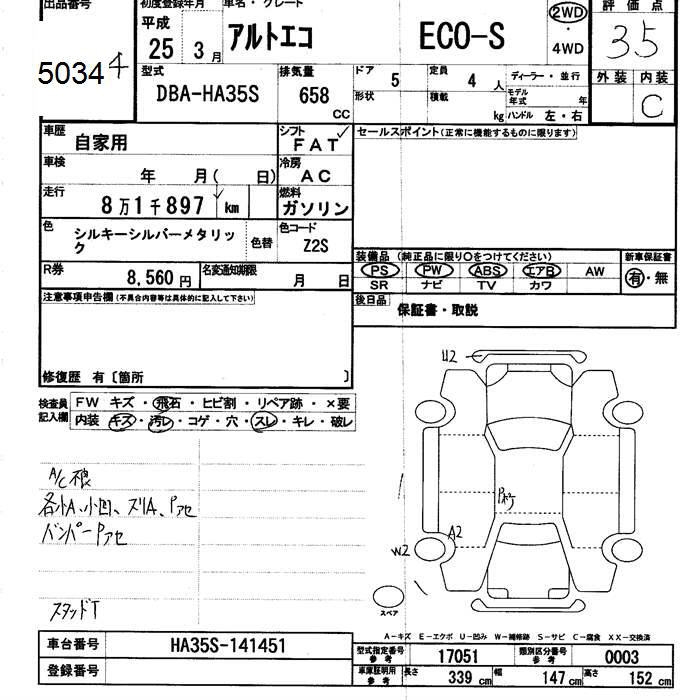 出品番号 初度登録年月 車名・グレード 評価点
平成 25 3月 アルトエコ ECO-S 2WD・4WD 3.5
5034
型式 排気量 ドア 5 定員 4人 ディーラー・並行 外装 内装
DBA-HA35S 658CC 形状 積載 kg モデル年式 年 ハンドル 左・右 C
車歴 自家用 シフト FAT セールスポイント(正常に機能するものに限ります)
車検 年 月( 日) 冷房 AC
走行 8万1千897 km 燃料 ガソリン
色 シルキーシルバーメタリック 色替 色コード Z2S
装備品(純正品に限り○をつけてください) 新車保証書
R券 8,560円 名変通知期限 月 日 PS PW ABS エアB AW 有・無
SR ナビ TV カワ
注意事項申告欄(不具合内容等は具体的に記入して下さい)
後日品 保証書・取説
修復歴 有〔箇所 〕
U2
検査員記入欄 FW キズ・飛石・ヒビ割・リペア跡・×要
内装 キズ・汚レ・コゲ・穴・スレ・キレ・破レ
A/C不良
各小A、小凹、スリA、Pアセ
バンパーPアセ
A2
W2
スタッドT
スペア
A−キズ E−エクボ U−凹み W−補修跡 S−サビ C−腐食 XX−交換済
車台番号 HA35S-141451 型式指定番号 参考 17051 類別区分番号 参考 0003
登録番号 車庫証明用 参考 長さ 339cm 幅 147cm 高さ 152cm